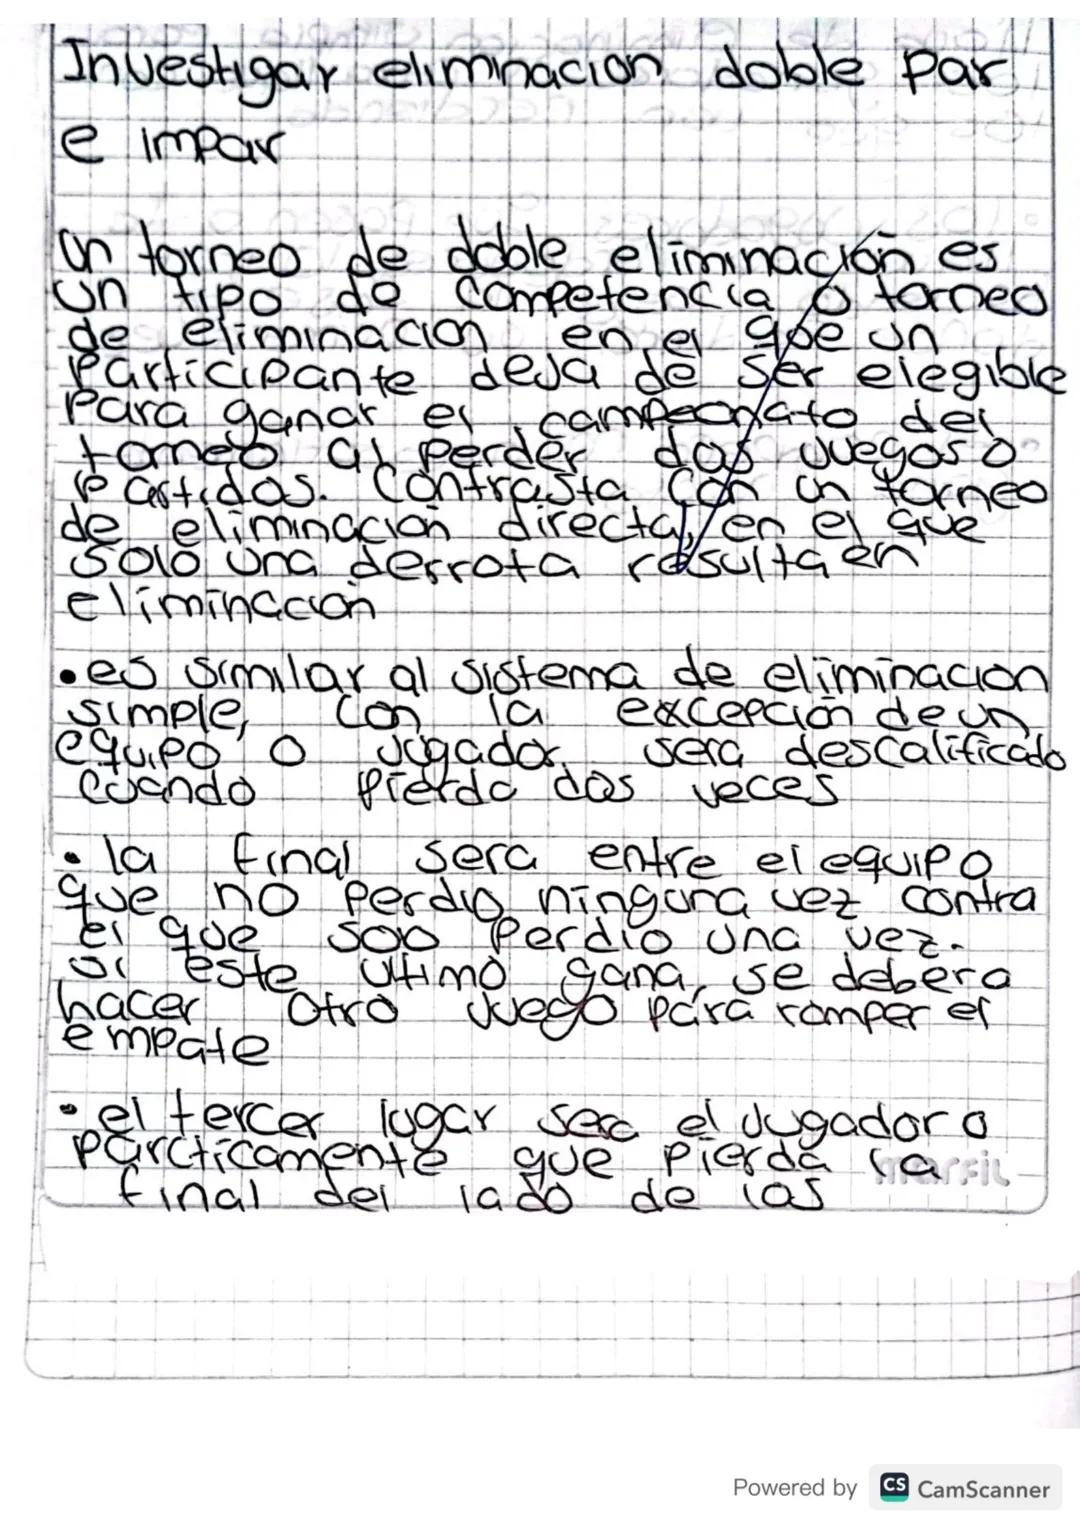 Investigar eliminacion doble par
e impar
un torneo de doble eliminación es
un tipo de competencia o torneo
de eliminacion en el que un
Participante deja de ser elegible
Para ganar el campeonato del
torneo al perder dos juegos o
Partidos. Contrasta con un torneo
de eliminación directa, en el que
solo una derrota resulta en
eliminación
• es similar al sistema de eliminacion
simple, con la excepción de un
equipo o jugador, sera descalificado
cuando pierda dos veces
• la final sera entre el equipo
que no perdio ninguna vez contra
el que soo perdio una vez.
si este ultimo gana, se debera
hacer otro juego para romper el
empate
• el tercer lugar sera el jugador o
parcticamente que pierda la
final del lado de los
marfil
Powered by CS CamScanner